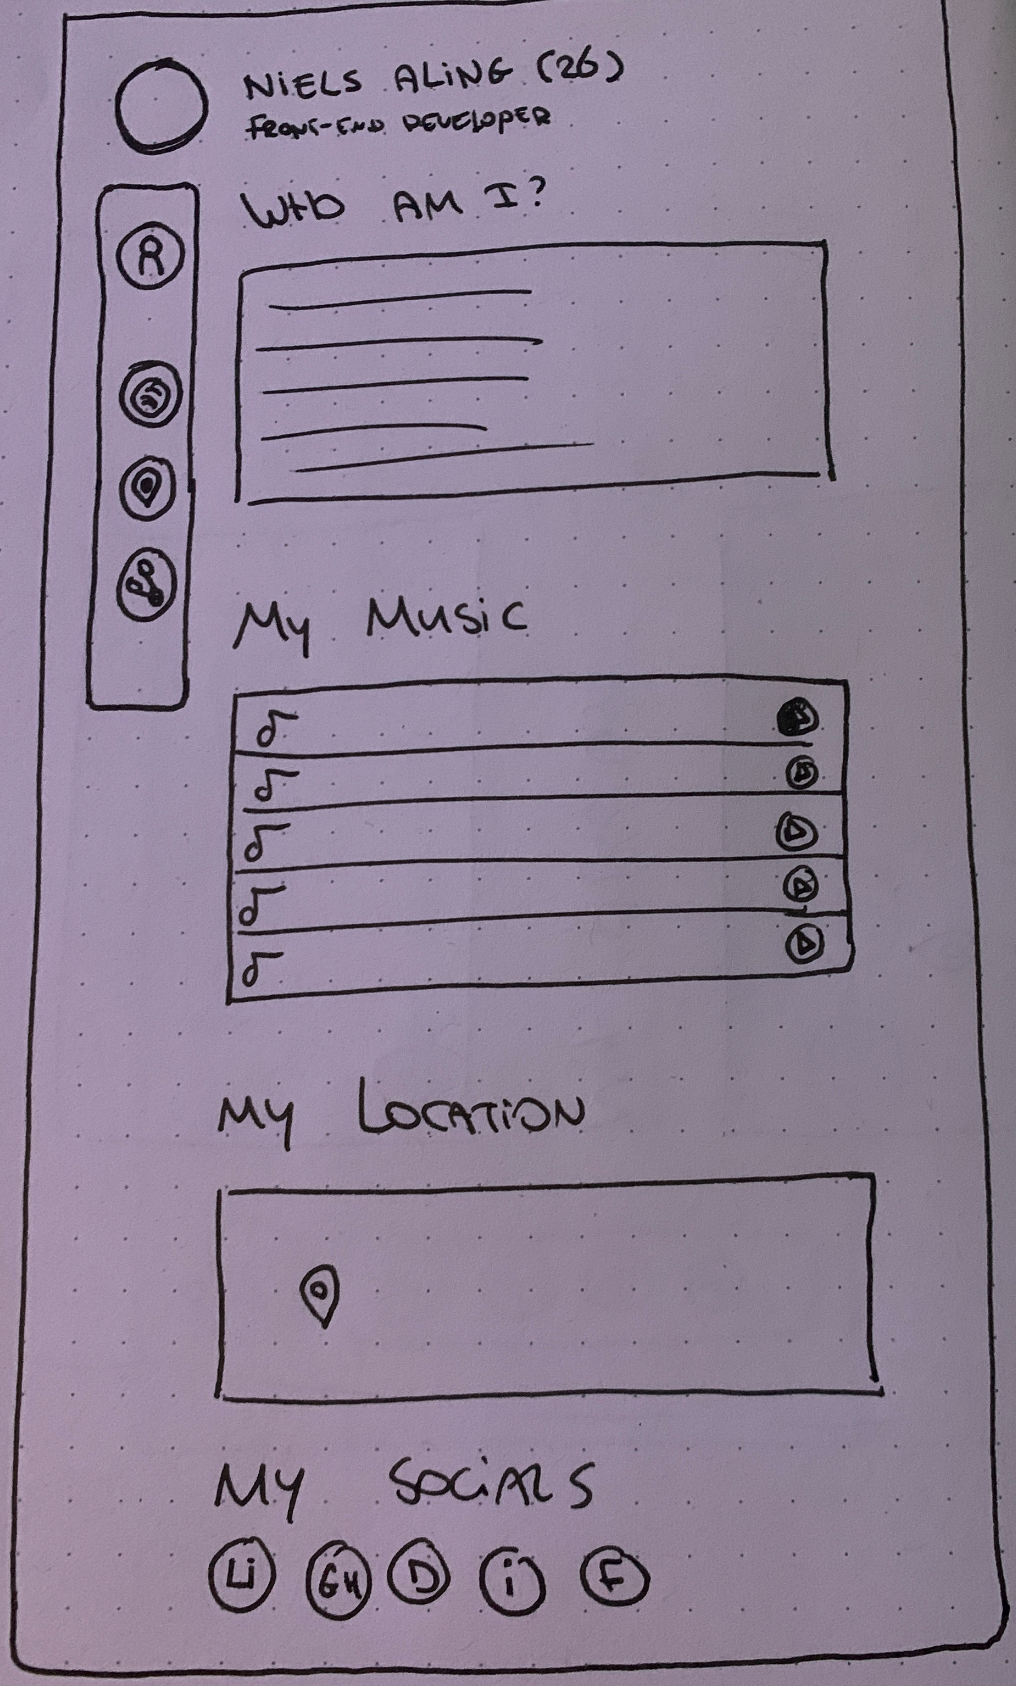 NIELS ALING (26)
FRONT-END DEVELOPER
WHO AM I?
My Music
MY LOCATION
MY SOCIALS
Li GH D i F